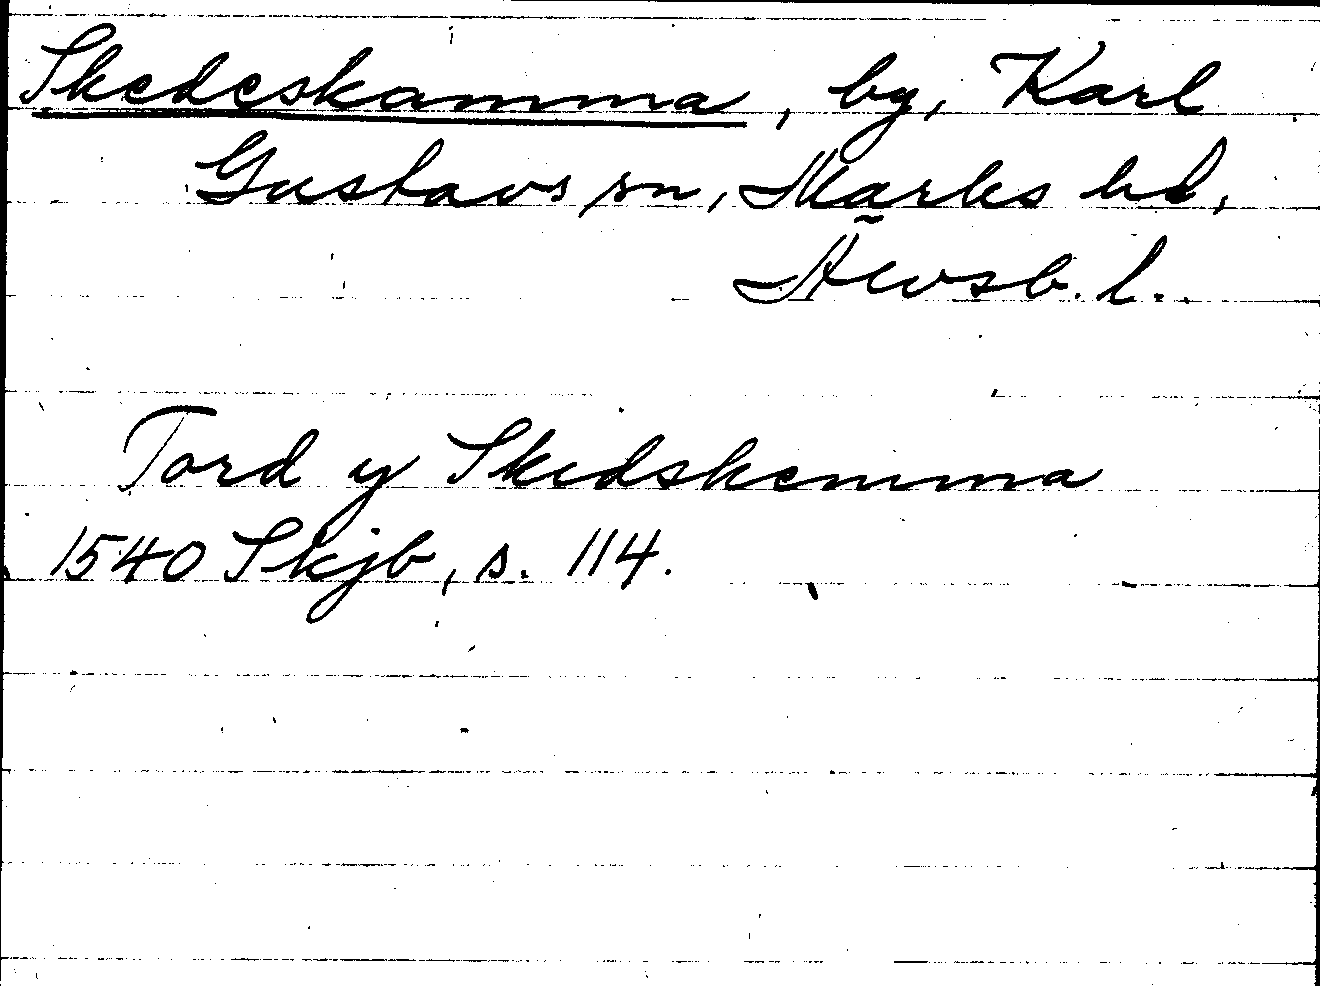 Skedeskamma, by, Karl
Gustavs sn, Marks hd,
Älvsb. l.
Tord y Skedskemma
1540 Skjb, s. 114.